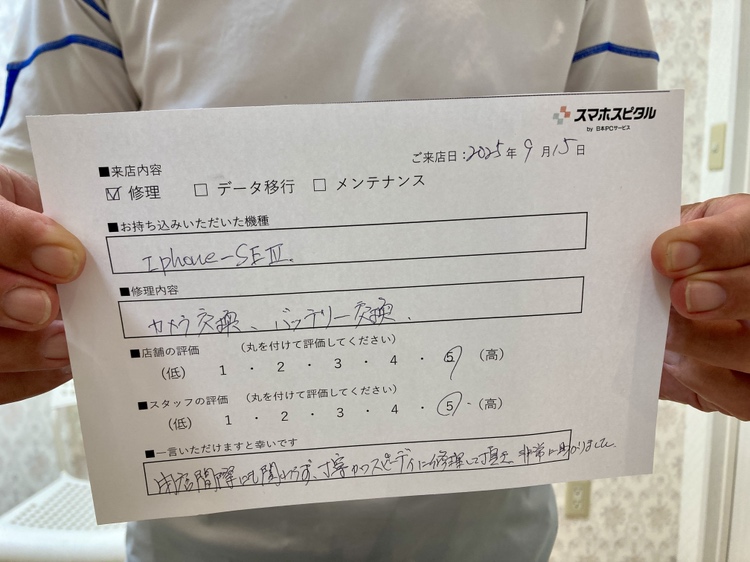 スマホスピタル
by 日本PCサービス
ご来店日:2025年9月15日
■来店内容
☑ 修理 □ データ移行 □ メンテナンス
■お持ち込みいただいた機種
Iphone-SEⅢ.
■修理内容
カメラ交換、バッテリー交換.
■店舗の評価 (丸を付けて評価してください)
(低) 1 ・ 2 ・ 3 ・ 4 ・ 5 (高)
■スタッフの評価 (丸を付けて評価してください)
(低) 1 ・ 2 ・ 3 ・ 4 ・ 5 ・ (高)
■一言いただけますと幸いです
閉店間際にも関わらず、丁寧かつスピーディに修理して頂き 非常に助かりました。